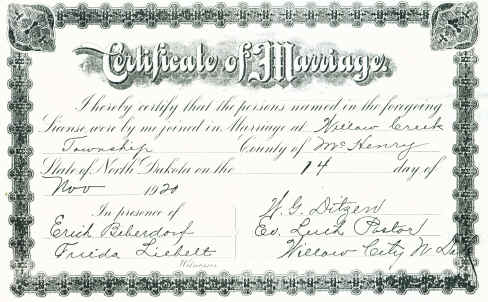 Certificate of Marriage.
I hereby certify that the persons named in the foregoing
License were by me joined in Marriage at Willow Creek
Township County of McHenry
State of North Dakota on the 14 day of
Nov 1920
In presence of
Erich Beberdorf
Frieda Liebelt
Witnesses
W. G. Ditzen
Ev. Luth Pastor
Willow City N Da